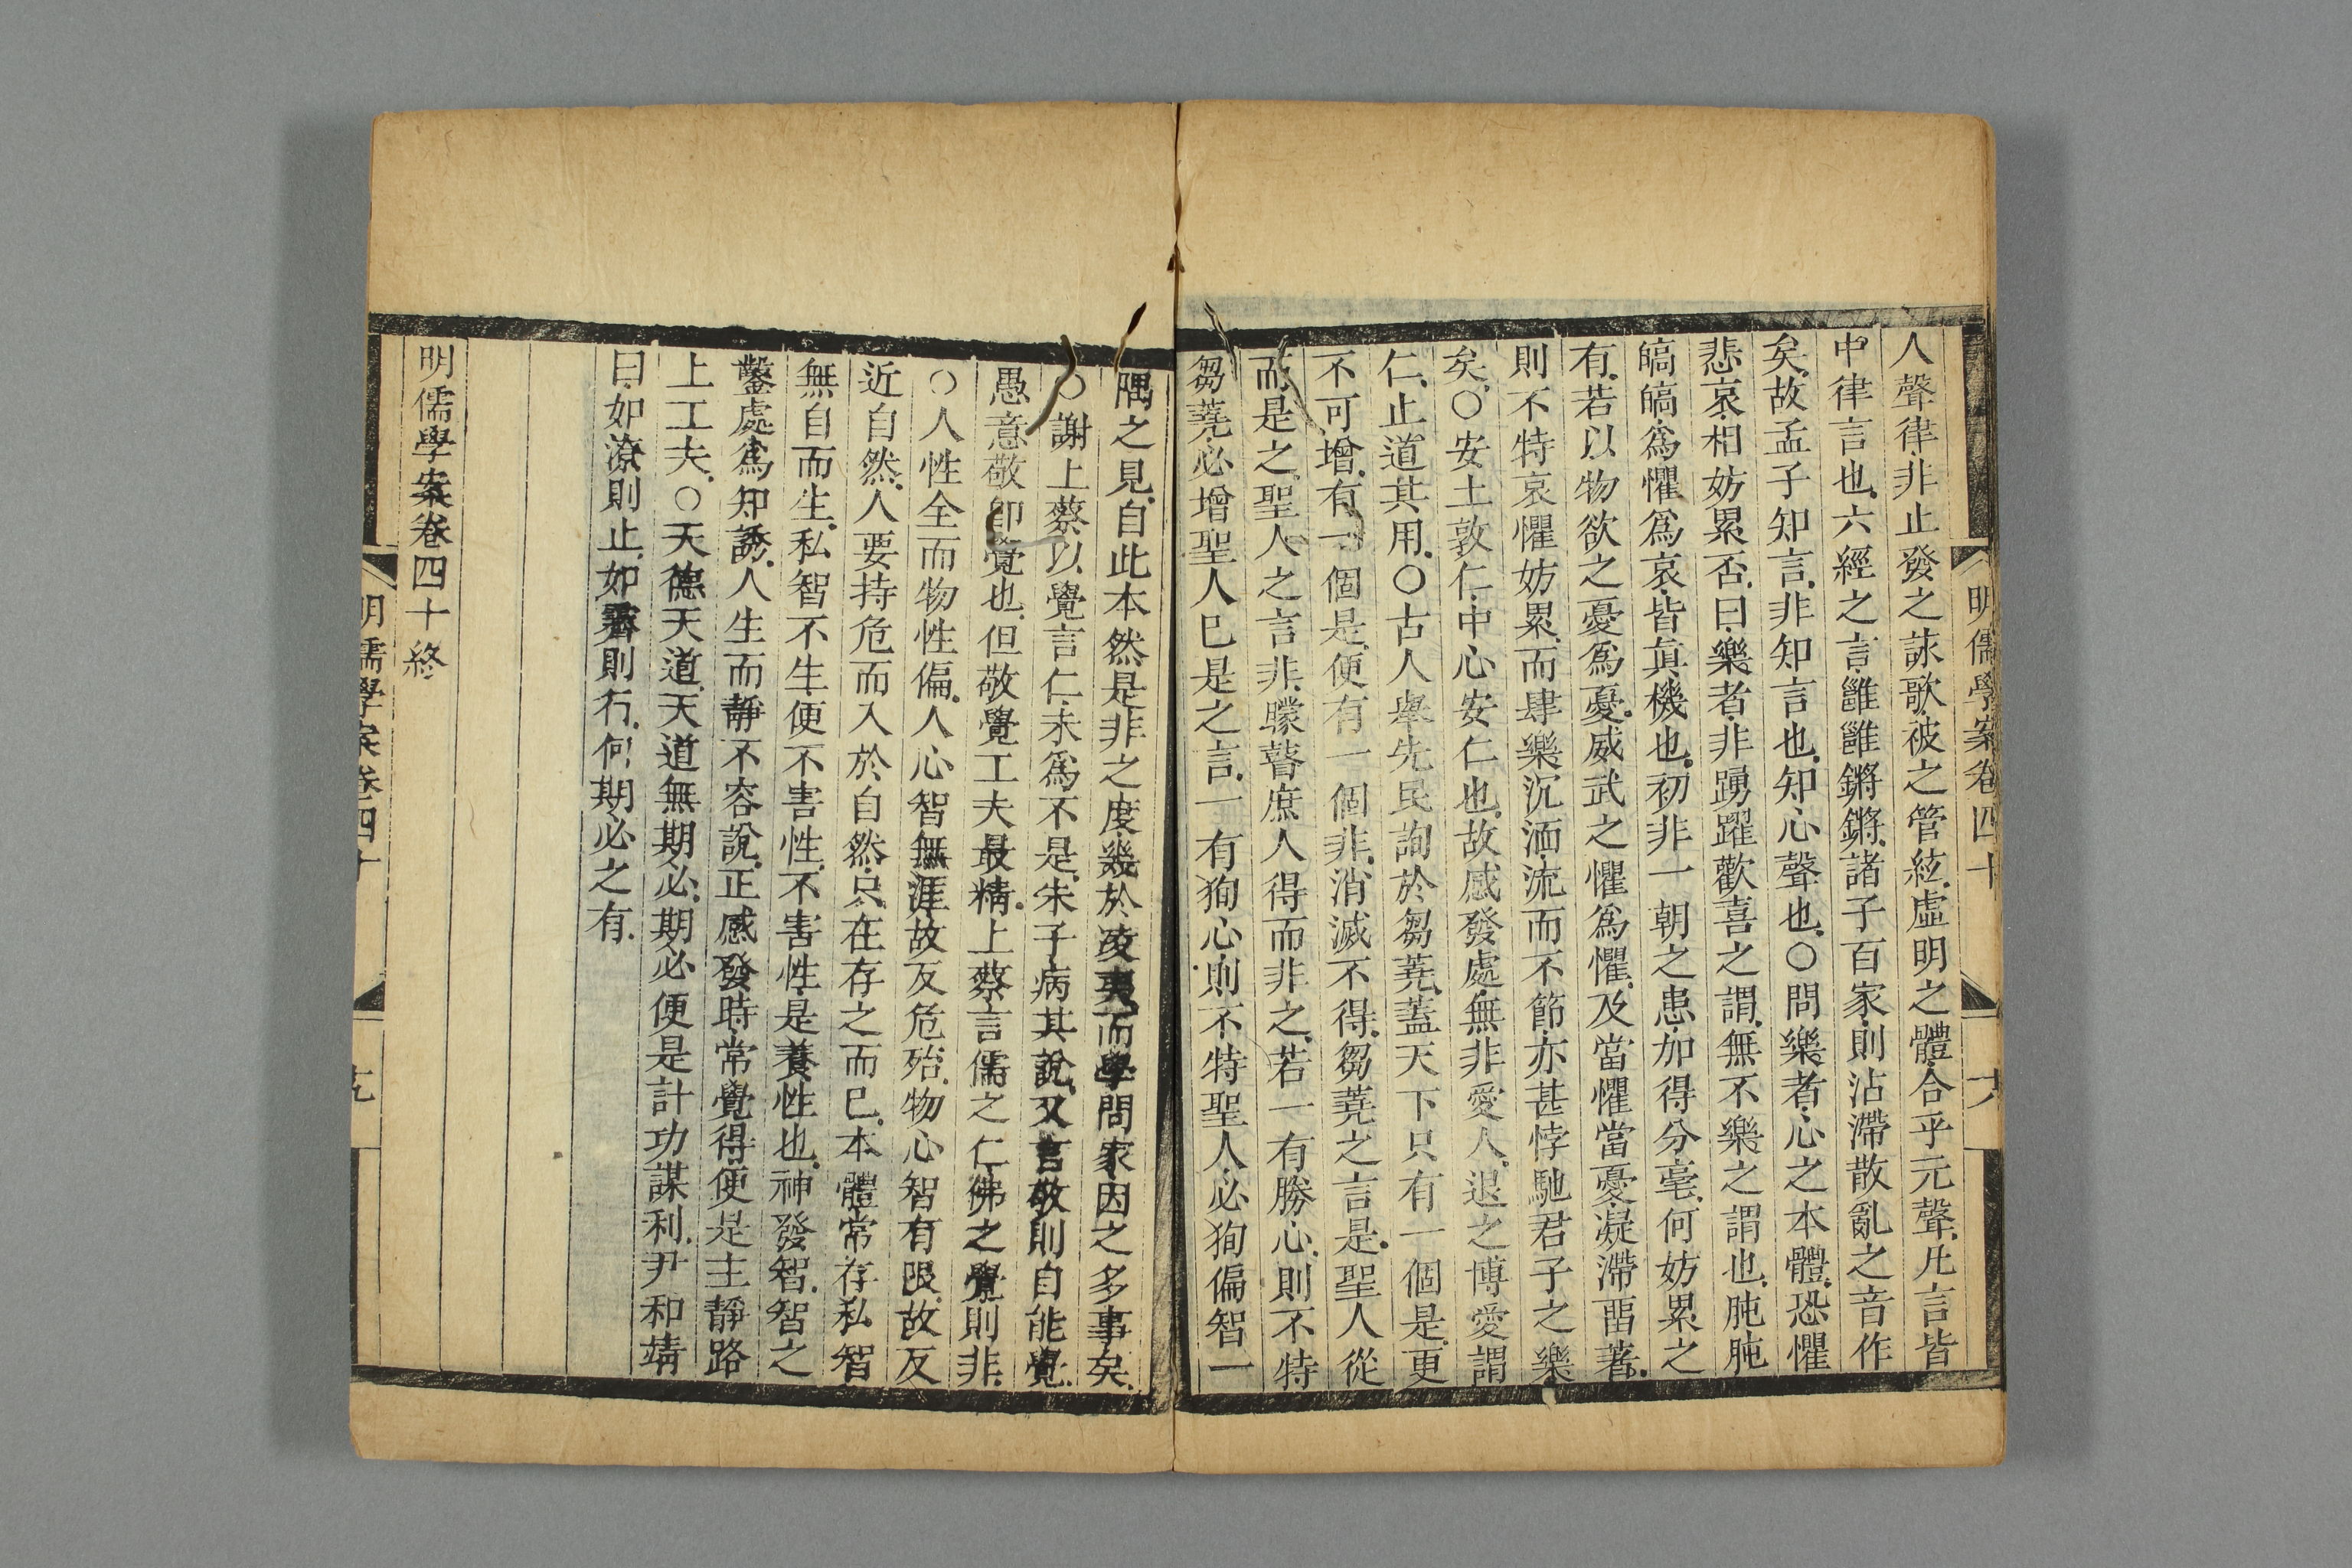 明儒學案卷四十
人聲律非止發之詠歌被之管絃虛明之體合乎元聲凡言皆
中律言也六經之言雝雝鏘鏘諸子百家則沾滯散亂之音作
矣故孟子知言非知言也知心聲也○問樂者心之本體恐懼
悲哀相妨累否曰樂者非踴躍歡喜之謂無不樂之謂也肫肫
皜皜爲懼爲哀皆眞機也初非一朝之患加得分毫何妨累之
有若以物欲之憂爲憂威武之懼爲懼及當懼當憂凝滯畱著
則不特哀懼妨累而肆樂沉湎流而不節亦甚悖馳君子之樂
矣○安土敦仁中心安仁也故感發處無非愛人退之博愛謂
仁止道其用○古人舉先民詢於芻蕘蓋天下只有一個是更
不可增有一個是便有一個非消滅不得芻蕘之言是聖人從
而是之聖人之言非矇瞽庶人得而非之若一有勝心則不特
芻蕘必增聖人巳是之言一有狥心則不特聖人必狥偏智一
隅之見自此本然是非之度幾於凌夷而學問家因之多事矣
○謝上蔡以覺言仁未爲不是朱子病其說又言敬則自能覺
愚意敬卽覺也但敬覺工夫最精上蔡言儒之仁佛之覺則非
○人性全而物性偏人心智無涯故反危殆物心智有限故反
近自然人要持危而入於自然只在存之而巳本體常存私智
無自而生私智不生便不害性不害性是養性也神發智智之
鑿處爲知誘人生而靜不容說正感發時常覺得便是主靜路
上工夫○天德天道天道無期必期必便是計功謀利尹和靖
曰如潦則止如霽則行何期必之有
明儒學案卷四十終
明儒學案卷四十